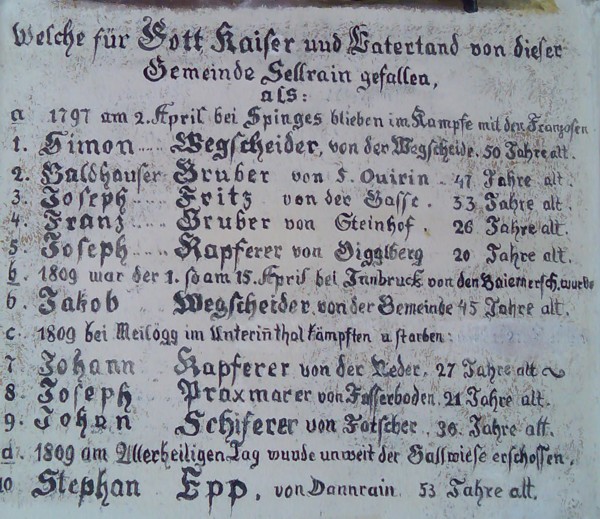 Welche für Gott, Kaiser und Vaterland von dieser
Gemeinde Sellrain gefallen,
als:
a 1797 am 2. April bei Spinges blieben im Kampfe mit den Franzosen
1. Simon ..... Wegscheider, von der Wegscheide. 50 Jahre alt.
2. Baldhauser Gruber von S. Quirin .. 47 Jahre alt.
3. Joseph ..... Fritz von der Gasse. 33 Jahre alt.
4. Franz ..... Gruber von Steinhof . 26 Jahre alt.
5 Joseph ..... Rapferer von Gigglberg 20 Jahre alt.
b. 1809 war der 1. so am 15. April bei Innbruck von den Baiern ersch. wurde
6. Jakob Wegscheider, von der Gemeinde 45 Jahre alt.
c. 1809 bei Meilögg im Unterinthal kämpften u starben:
7 Johann Kapferer von der Neder. 27 Jahre alt
8 Joseph Praxmarer von Fasserboden. 21 Jahre alt.
9. Johan Schiferer von Fotscher . 36. Jahre alt.
d. 1809 am Allerheiligen Tag wurde unweit der Gallwiese erschossen.
10 Stephan Epp. von Dannrain. 53 Jahre alt.